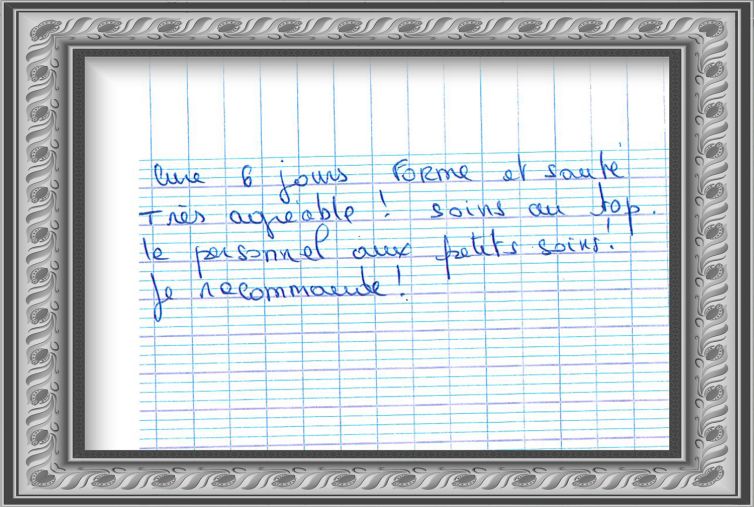 Cure 6 jours Forme et santé
Très agréable ! soins au top.
le personnel aux petits soins !
je recommande !